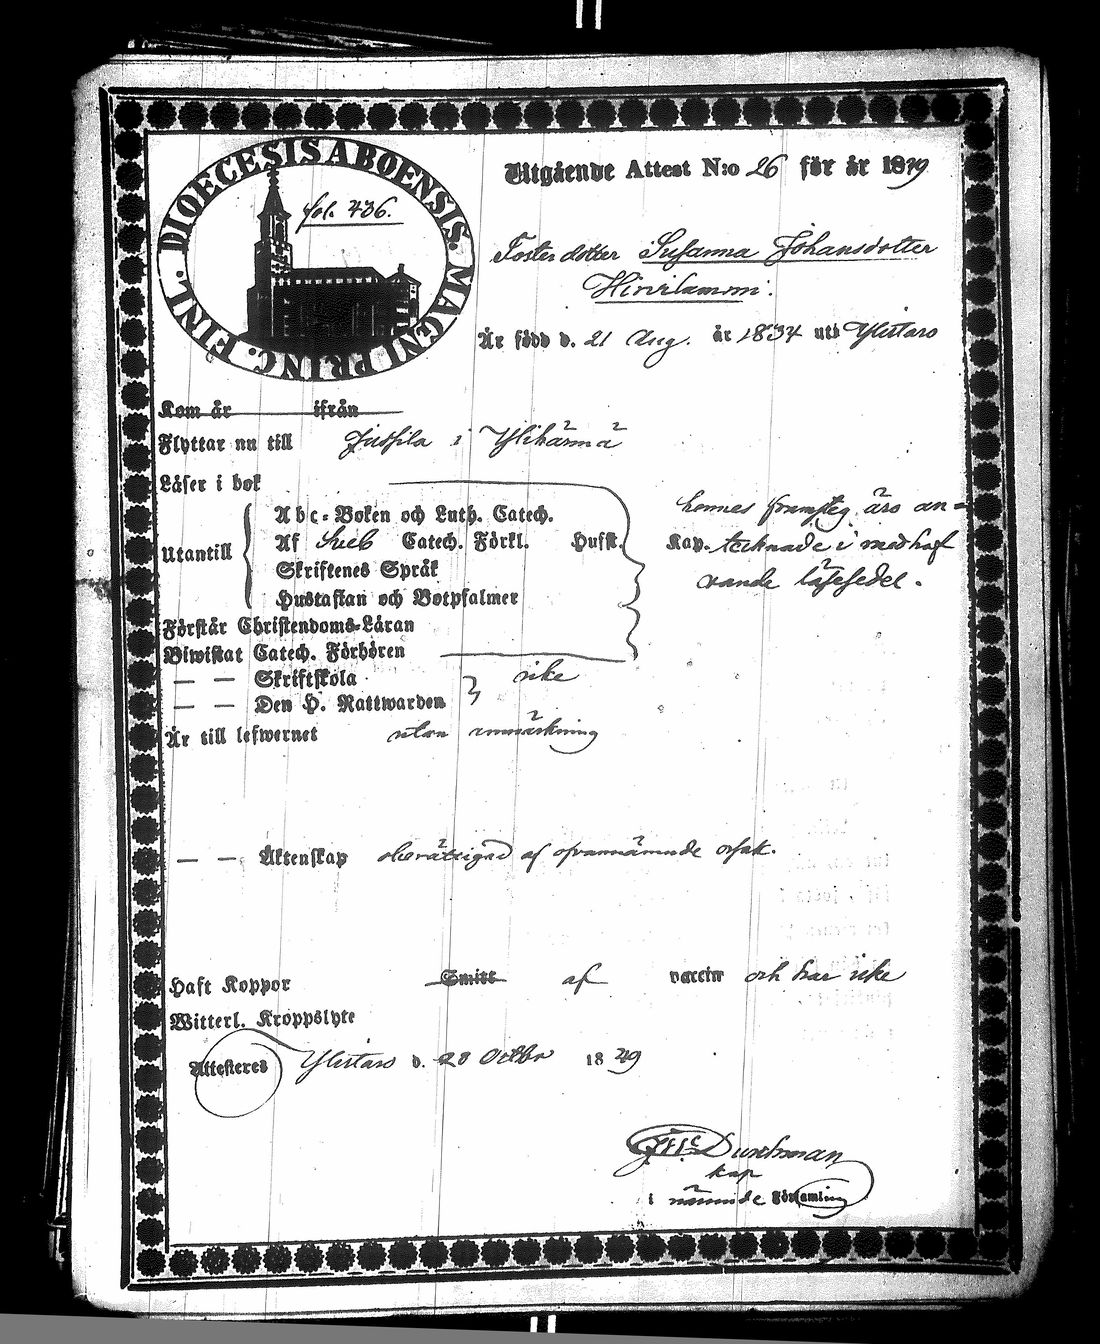 DIOECESIS ABOENSIS. MAGNI PRINC. FINL.
fol. 436.
Utgående Attest N:o 26 för år 1849
Foster dotter Susanna Johansdotter
Hirvilammi.
Är född d. 21 Aug. år 1834 uti Ylistaro
Kom år ifrån
Flyttar nu till Jussila i Ylihärmä
Läser i bok
Utantill
Abc-Boken och Luth. Catech.
Af Sveb Catech. Förkl. Husst. Kap.
Skriftenes Språk
Hustaflan och Botpsalmer
hennes framsteg äro an=
tecknade i medhaf
vande läsesedel.
Förstår Christendoms-Läran
Biwistat Catech. Förhören
— — Skriftskola
— — Den H. Nattwarden
icke
Är till lefwernet utan anmärkning
— — Äktenskap oberättigad af ofvannämnde orsak.
Haft Koppor Smitt af vaccin och har icke
Witterl. Kroppslyte
Attesteres Ylistaro d. 28 Octbr 1849
Durchman
kap
i nämnde Församling